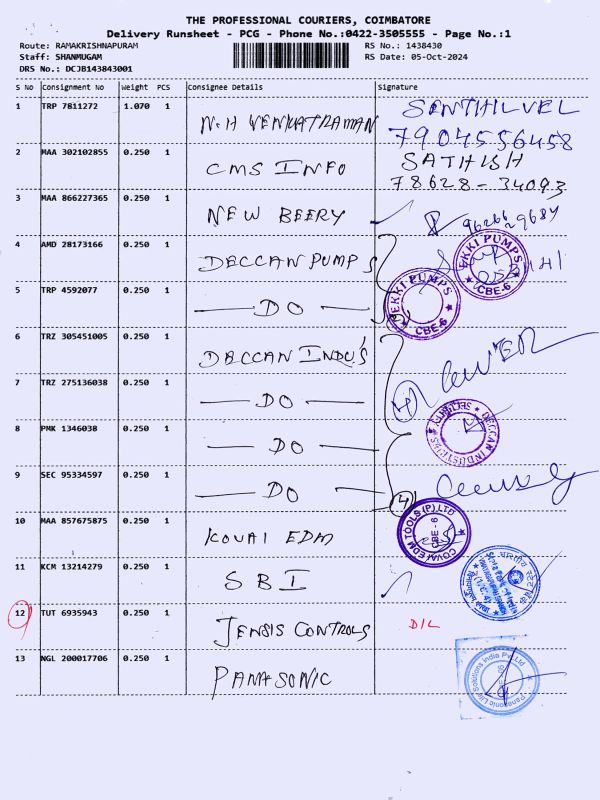 THE PROFESSIONAL COURIERS, COIMBATORE
Delivery Runsheet - PCG - Phone No.:0422-3505555 - Page No.:1
Route: RAMAKRISHNAPURAM RS No.: 1438430
Staff: SHANMUGAM RS Date: 05-Oct-2024
DRS No.: DCJB143843001
S No Consignment No Weight PCS Consignee Details Signature
1 TRP 7811272 1.070 1 N.H VENKATRAMAN SENTHILVEL
7904556458
2 MAA 302102855 0.250 1 CMS INFO SATHISH
78628-34093
3 MAA 866227365 0.250 1 NEW BEERY
4 AMD 28173166 0.250 1 DECCAN PUMPS EKKI PUMPS
5 TRP 4592077 0.250 1 DO EKKI PUMPS CBE-6
6 TRZ 305451005 0.250 1 DECCAN INDU'S
7 TRZ 275136038 0.250 1 DO 4
8 PMK 1346038 0.250 1 DO DECCAN INDUSTRIES SECURITY
9 SEC 95334597 0.250 1 DO 4
10 MAA 857675875 0.250 1 KOVAI EDM COVAI EDM TOOLS (P) LTD CBE - 6
11 KCM 13214279 0.250 1 SBI
12 TUT 6935943 0.250 1 JENSIS CONTROLS D/L
13 NGL 200017706 0.250 1 PANASONIC Panasonic Life Solutions India Pvt Ltd